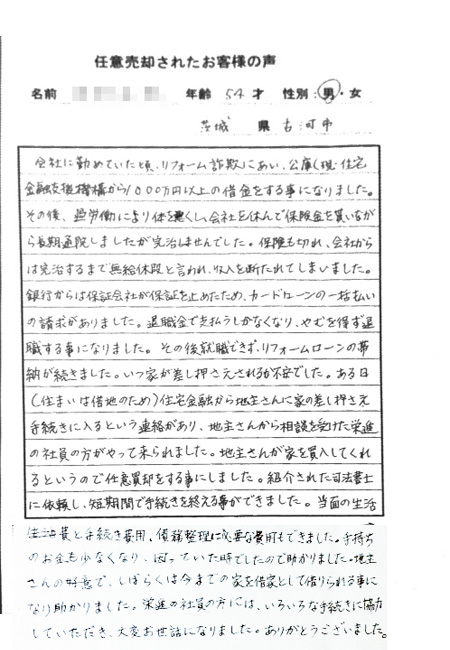 任意売却されたお客様の声
名前 年齢 54 才 性別:男・女
茨城 県 古河市
会社に勤めていた頃、リフォーム詐欺にあい、公庫(現・住宅
金融支援機構から1000万円以上の借金をする事になりました。
その後、過労働により体を悪くし、会社を休んで保険金を貰いなが
ら長期通院しましたが完治しませんでした。保険も切れ、会社から
は完治するまで無給休暇と言われ、収入を断たれてしまいました。
銀行からは保証会社が保証を止めたため、カードローンの一括払い
の請求がありました。退職金で支払うしかなくなり、やむを得ず退
職する事になりました。その後就職できず、リフォームローンの滞
納が続きました。いつ家が差し押さえされるか不安でした。ある日
(住まいは借地のため)住宅金融から地主さんに家の差し押さえ
手続きに入るという連絡があり、地主さんから相談を受けた栄進
の社員の方がやって来られました。地主さんが家を買入してくれ
るというので任意買却をする事にしました。紹介された司法書士
に依頼し、短期間で手続きを終える事ができました。当面の生活
生活費と手続き費用、債務整理に必要な費用もできました。手持ち
のお金も少なくなり、困っていた時でしたので助かりました。地主
さんの好意で、しばらくは今までの家を借家として借りられる事に
なり助かりました。栄進の社員の方には、いろいろな手続きに協力
していただき、大変お世話になりました。ありがとうございました。